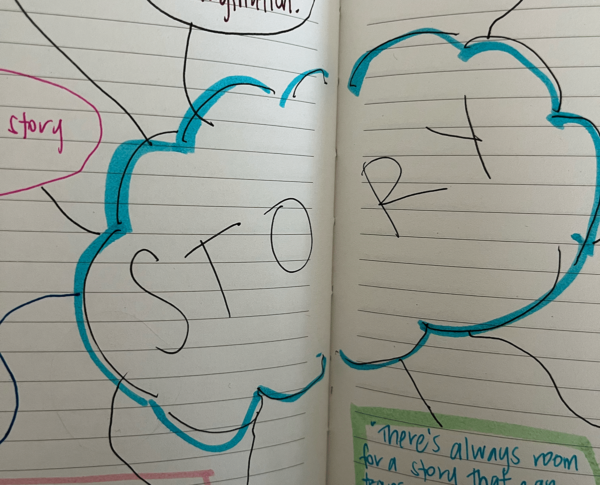 story
STORY
"There's always room
for a story that can